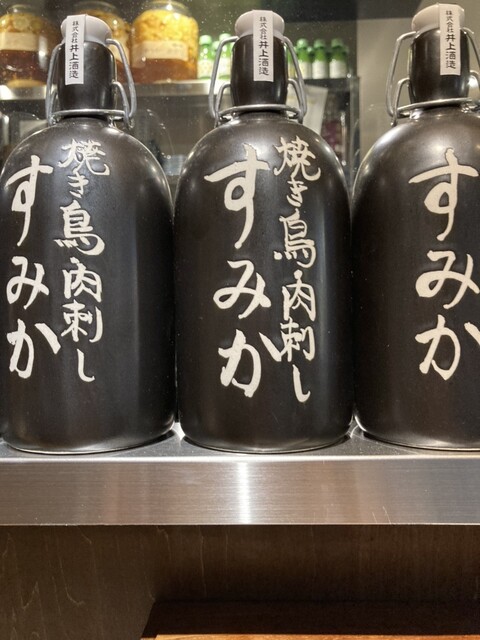 株式会社 井上酒造
焼き鳥・肉刺し
すみか
株式会社 井上酒造
焼き鳥・肉刺し
すみか
株式会社 井上酒造
すみか